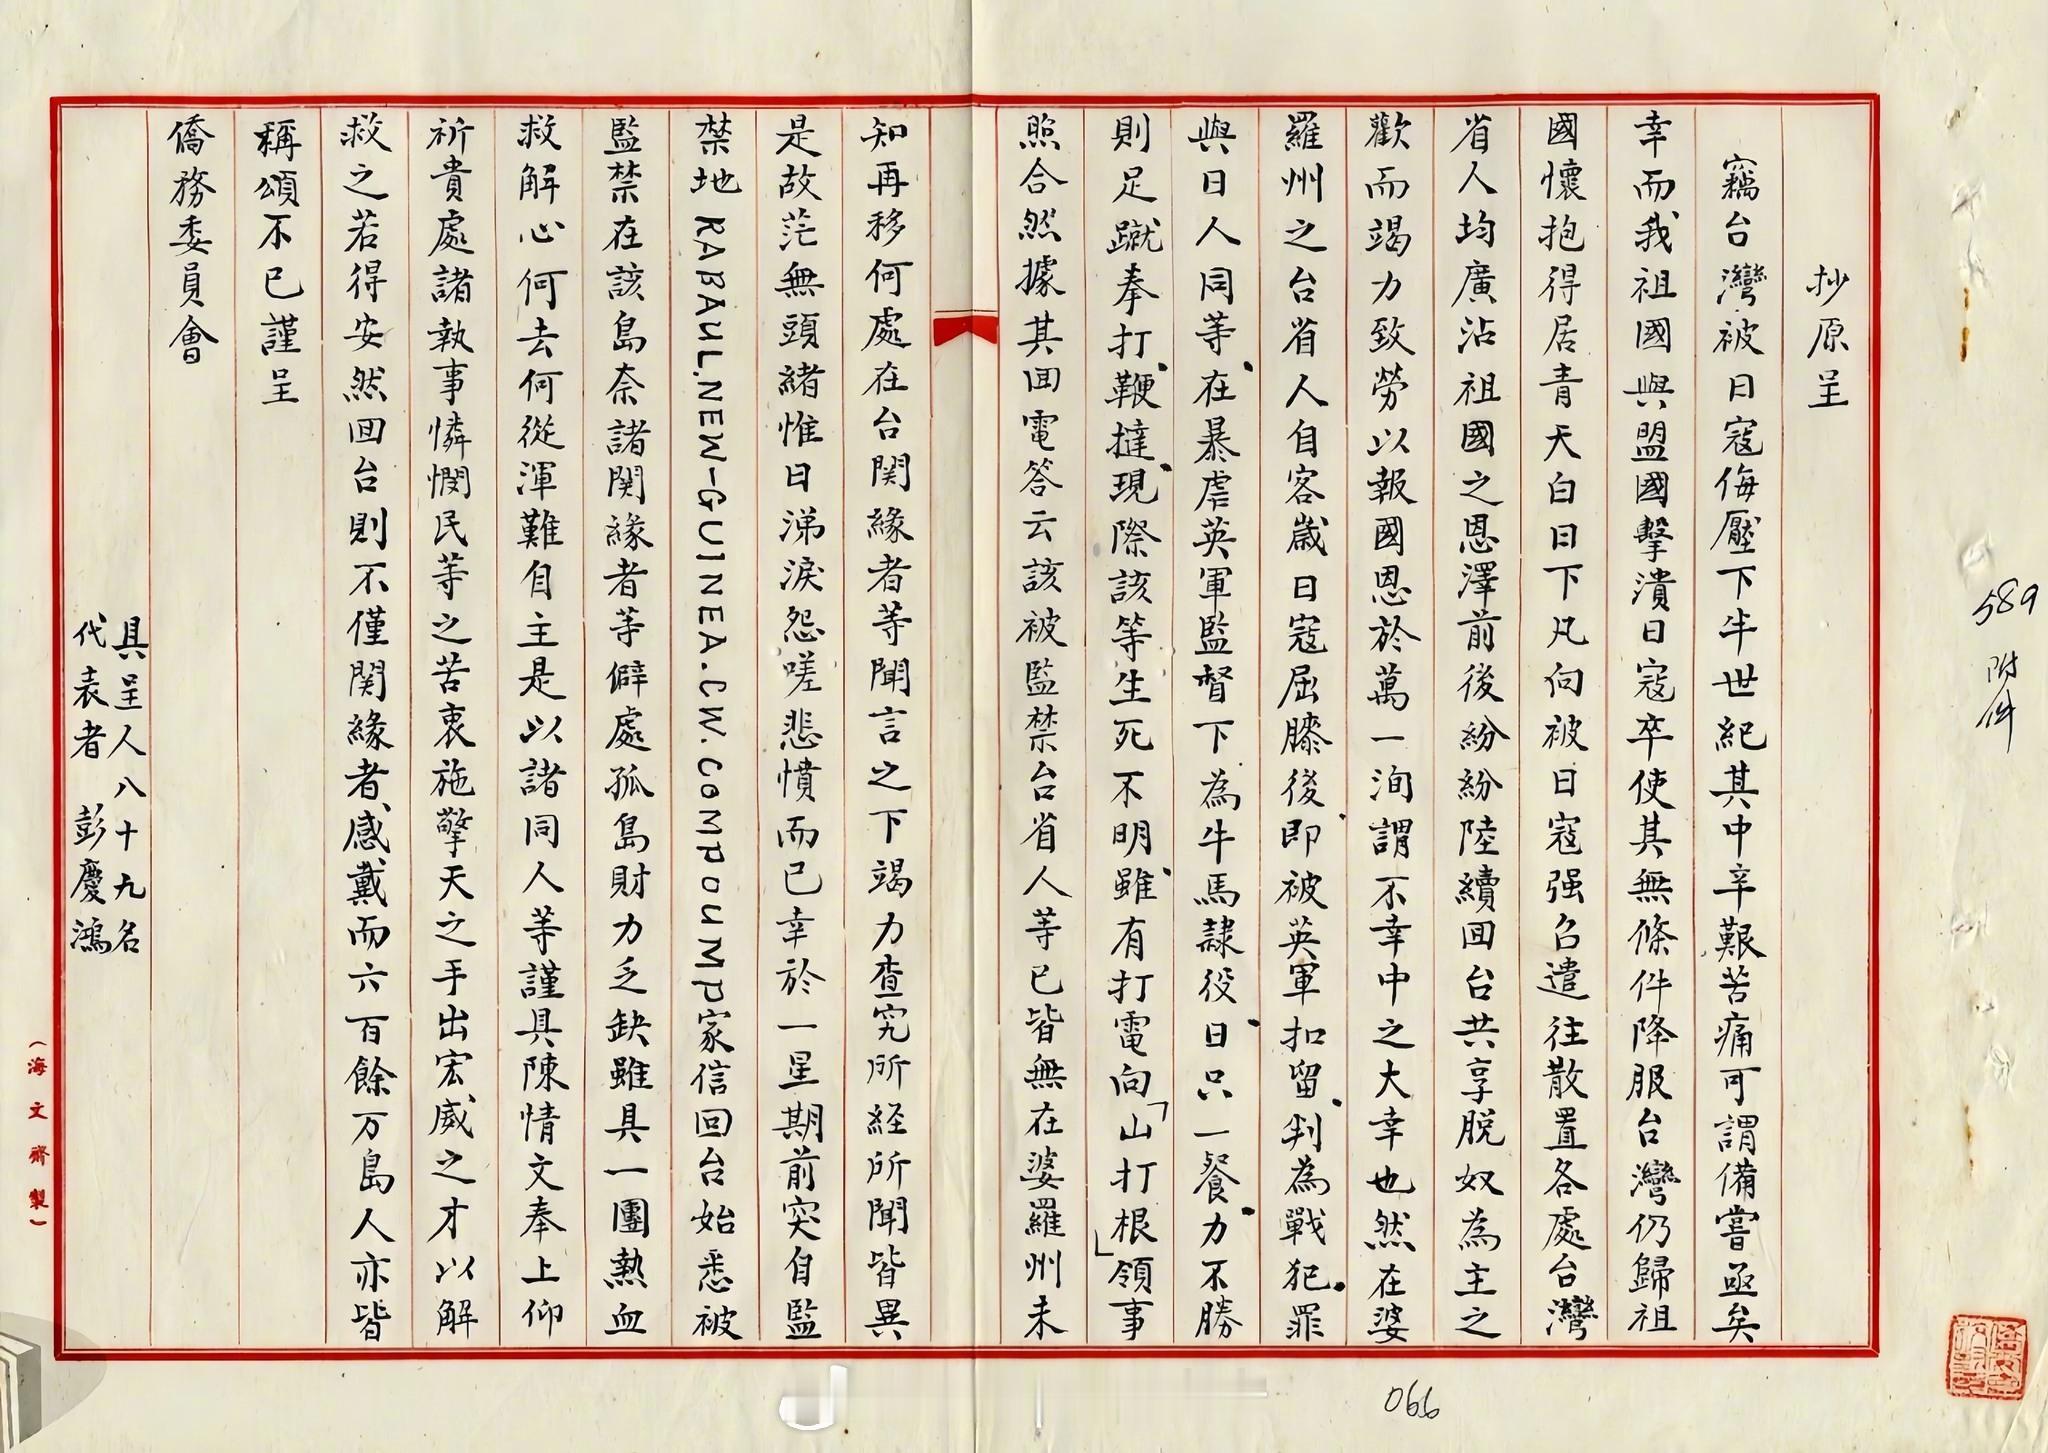 抄原呈
竊台灣被日寇侮壓下半世紀其中辛艱苦痛可謂備嘗亟矣
幸而我祖國與盟國擊潰日寇卒使其無條件降服台灣仍歸祖
國懷抱得居青天白日下凡向被日寇强召遣往散置各處台灣
省人均廣沾祖國之恩澤前後紛紛陸續回台共享脱奴為主之
歡而竭力致勞以報國恩於萬一洵謂不幸中之大幸也然在婆
羅州之台省人自客歲日寇屈膝後、即被英軍扣留、判為戰犯。罪
與日人同等、在暴虐英軍監督下為牛馬隸役、日只一餐、力不勝
則足蹴奉打、鞭撻、現際該等生死不明、雖有打電向「山打根」領事
照合然據其回電答云該被監禁台省人等已皆無在婆羅州未
知再移何處在台関緣者等聞言之下竭力查究所経所聞皆異
是故茫無頭緒惟日涕淚怨嗟悲憤而已幸於一星期前突自監
禁地RABAUL.NEW-GUINEA.CW.COMPOUMP家信回台始悉被
監禁在該島奈諸関緣者等僻處孤島財力乏缺雖具一團熱血
救解心何去何從渾難自主是以諸同人等謹具陳情文奉上仰
祈貴處諸執事憐憫民等之苦衷施擎天之手出宏威之才以解
救之若得安然回台則不僅関緣者感戴而六百餘万島人亦皆
稱頌不已謹呈
僑務委員會
具呈人八十九名
代表者 彭慶鴻
(海文齋製)
589
附件
066